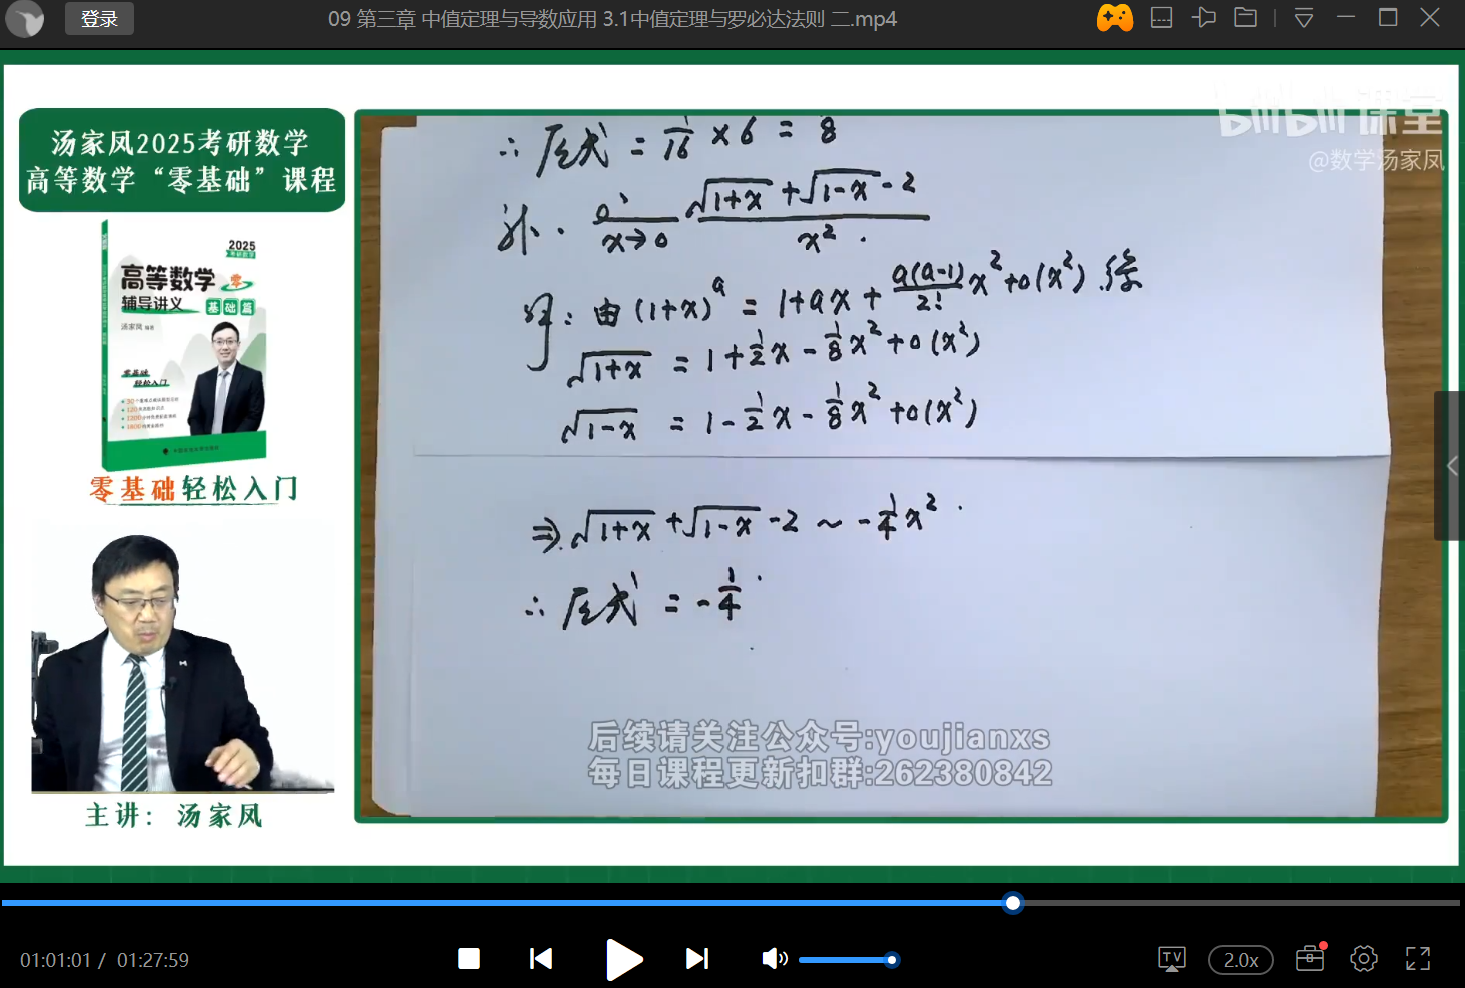 登录
09 第三章 中值定理与导数应用 3.1中值定理与罗必达法则 二.mp4
汤家凤2025考研数学
高等数学“零基础”课程
2025
高等数学 零
辅导讲义 基础篇
汤家凤
零基础
轻松入门
零基础轻松入门
主讲： 汤家凤
bilibili 课堂
@数学汤家凤
∴ 原式 = 1/16 × 6 = 3/8
x→0 (√(1+x) + √(1-x) - 2)/x²
由 (1+x)^a = 1+ax + a(a-1)/2! x² + o(x²) 得
√(1+x) = 1 + 1/2 x - 1/8 x² + o(x²)
√(1-x) = 1 - 1/2 x - 1/8 x² + o(x²)
⇒ √(1+x) + √(1-x) - 2 ~ - 1/4 x².
∴ 原式 = - 1/4.
后续请关注公众号:youjianxs
每日课程更新扣群:262380842
01:01:01 / 01:27:59
TV
2.0x